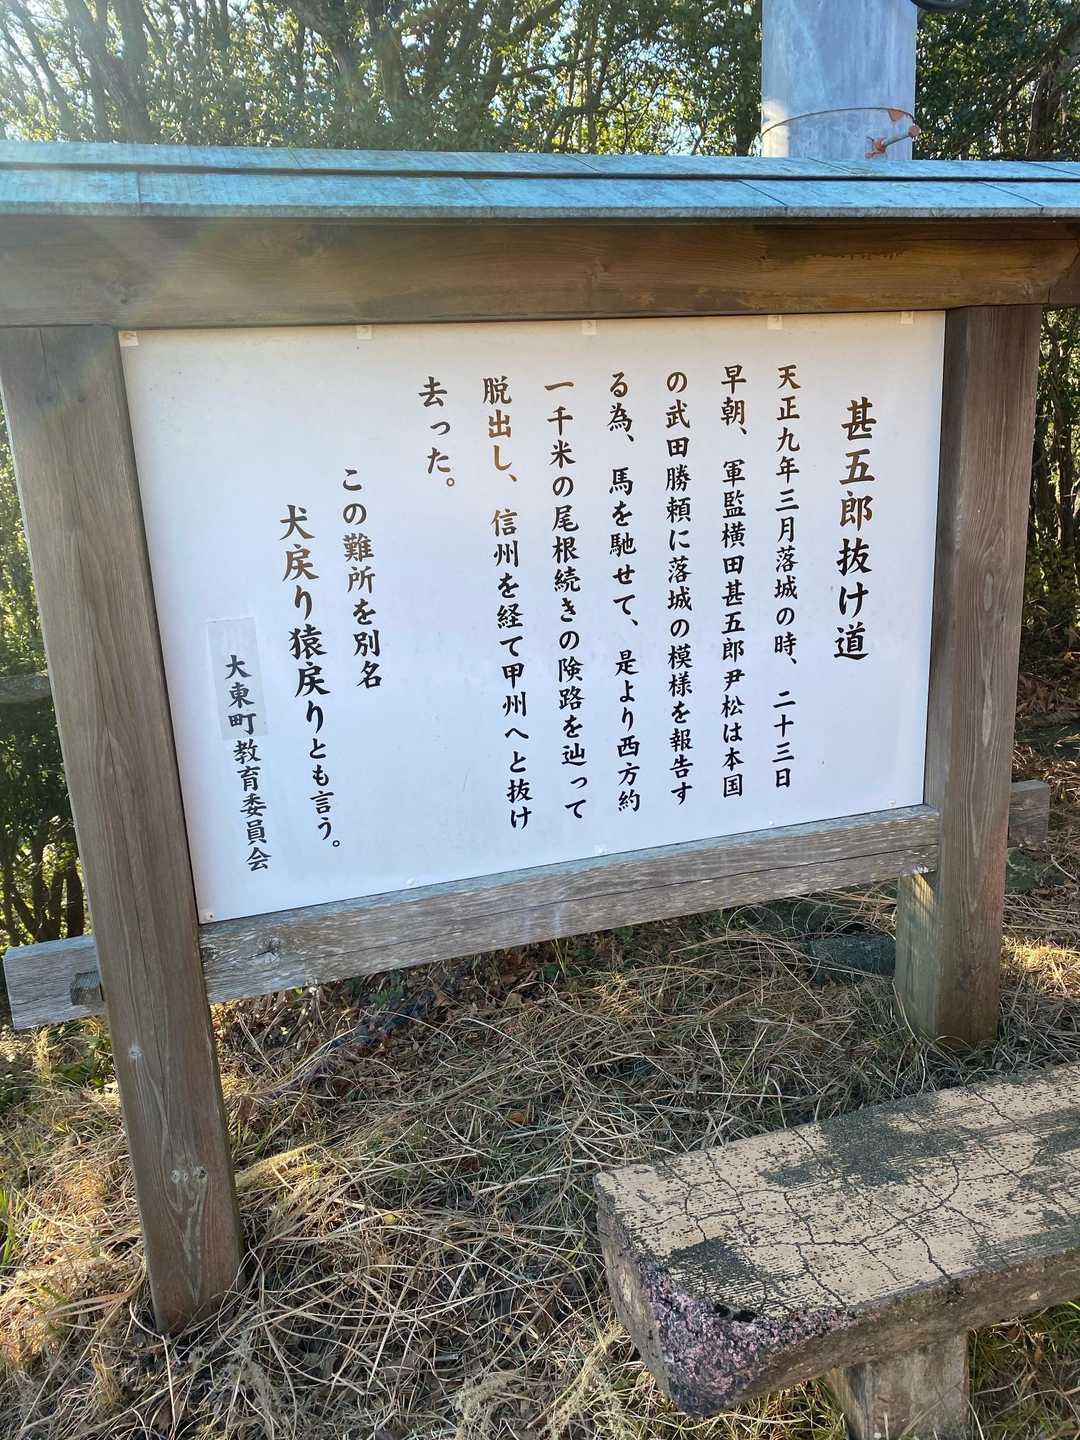 甚五郎抜け道
天正九年三月落城の時、二十三日
早朝、軍監横田甚五郎尹松は本国
の武田勝頼に落城の模様を報告す
る為、馬を馳せて、是より西方約
一千米の尾根続きの険路を辿って
脱出し、信州を経て甲州へと抜け
去った。
この難所を別名
犬戻り猿戻りとも言う。
大東町教育委員会